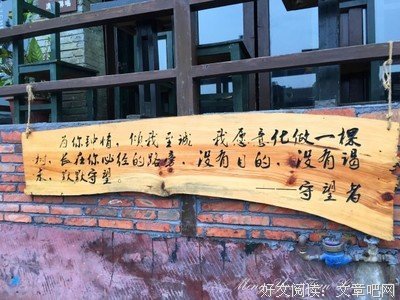 为你钟情，倾我至诚 我愿意化做一棵
树、长在你必经的路旁，没有目的、没有渴
求、默默守望。
——守望者
好文阅读：文章吧网